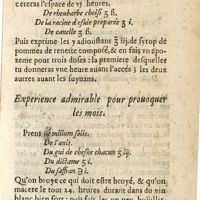 etteras l'espace de vj heures,
De rheubarbe choisi ʒ ß.
De la racine d'esule preparée ʒ i.
De canelle ʒ ß.
Puis exprime les y adioustant ℥ iij. de syrop de
pommes de renette composé, & en fait vo⁹ apo-
zeme pour trois doses: la premiere desquelles
tu donneras vne heure auant l'accez; les deux
autres auant les suyuans.
Experience admirable pour prouoquer
les mois.
Prens milium solis.
De l'anis.
Du gui de chesne chacun ʒ ij.
Du dictame ʒ i.
Du saffran ℈ i.
Qu'on broye ce qui doit estre broyé, & qu'on
macere le tout 24. heures durant dans du vin
blanc bien fort: